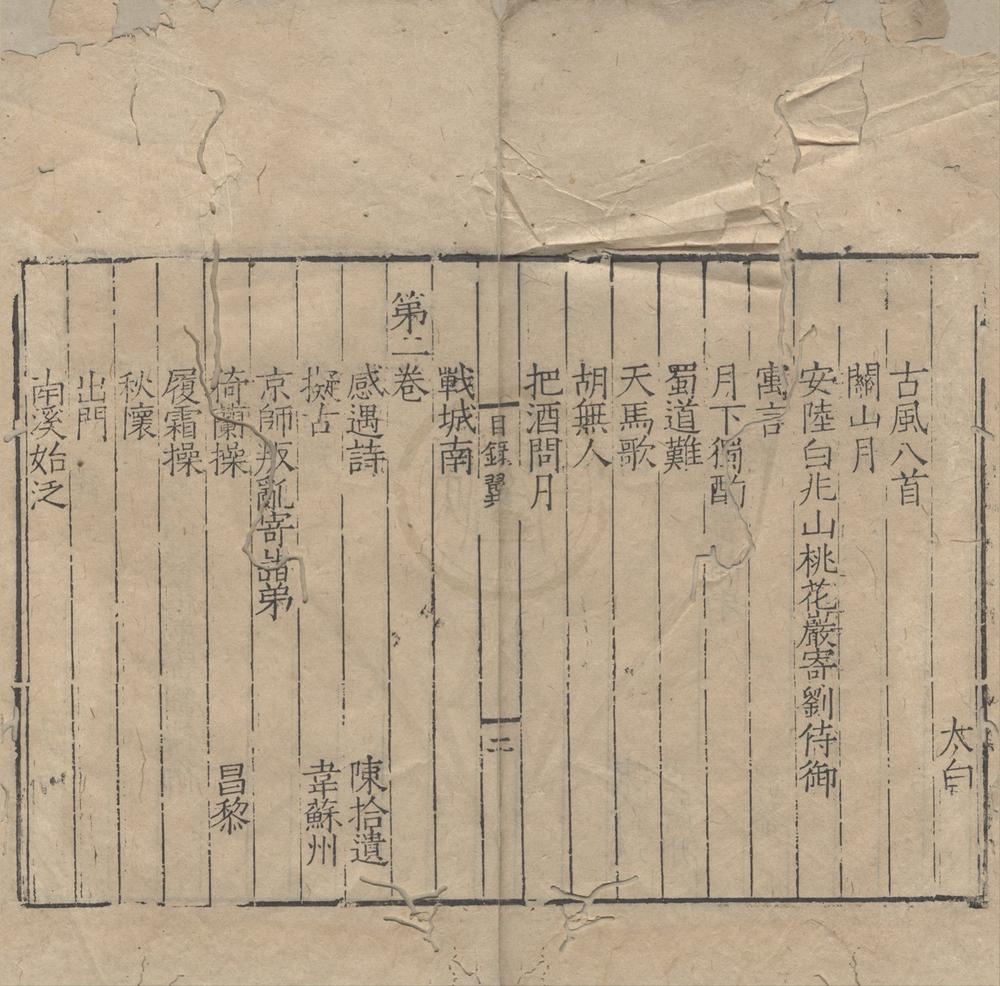 太白
古風八首
關山月
安陸白兆山桃花巖寄劉侍御
寓言
月下獨酌
蜀道難
天馬歌
胡無人
把酒問月
目錄
二
戰城南
第二卷
感遇詩 陳拾遺
擬古 韋蘇州
京師叛亂寄諸弟
猗蘭操 昌黎
履霜操
秋懷
出門
南溪始泛